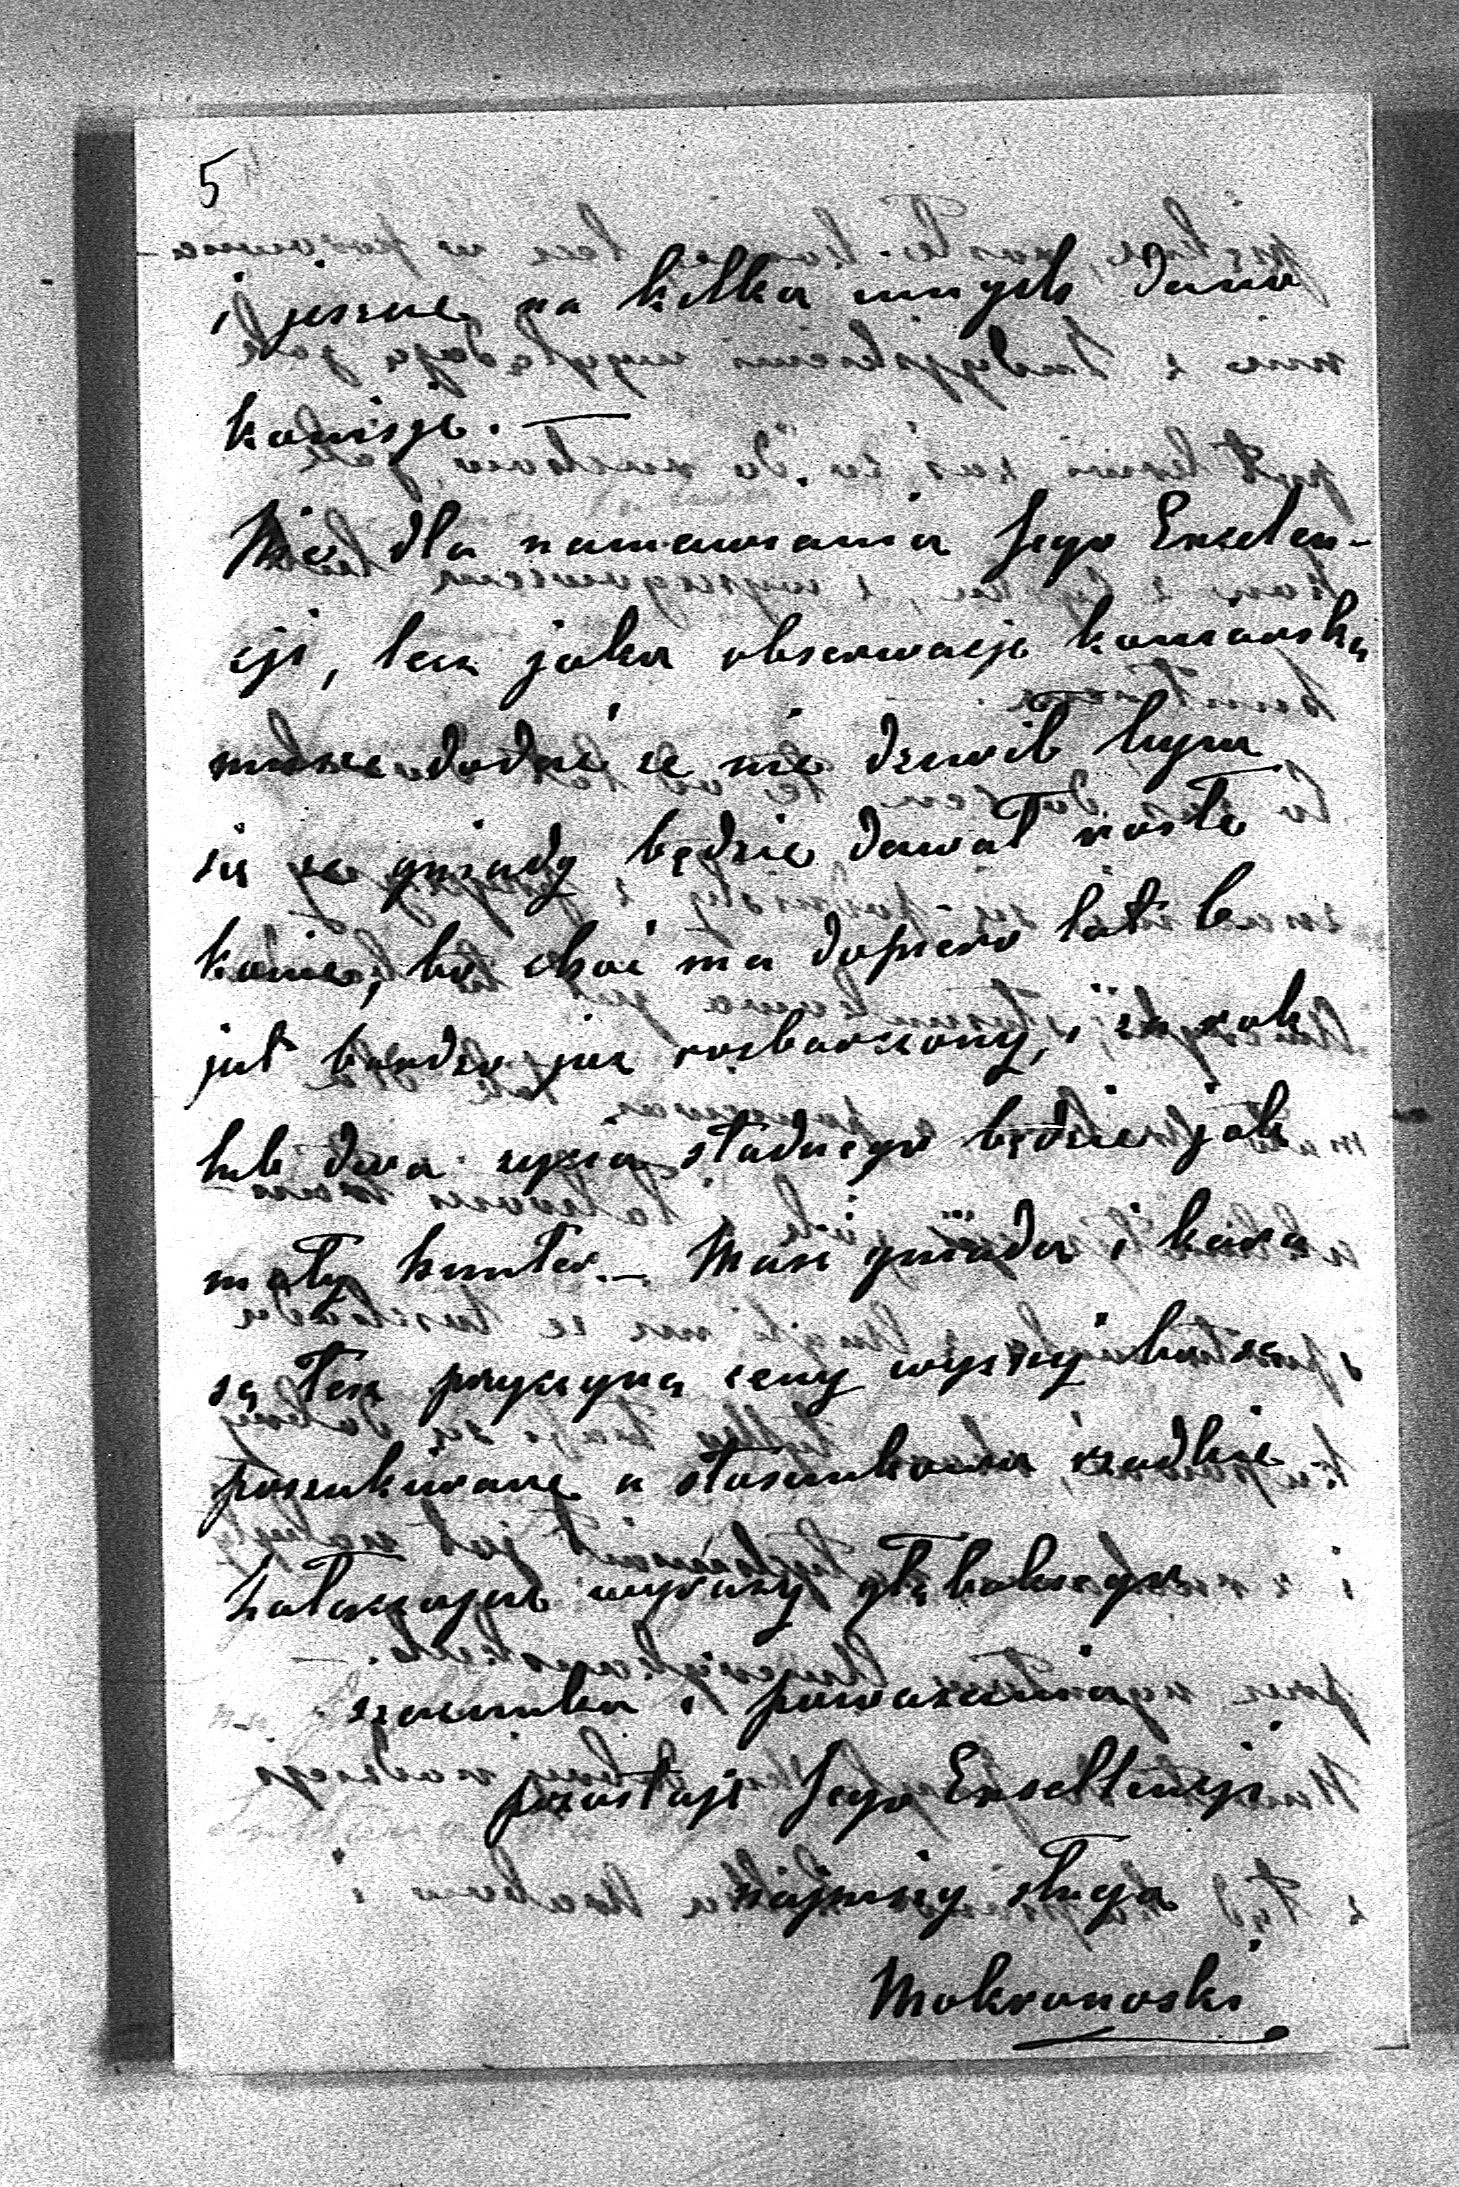 5
i jeszcze na kilka innych dano
komisje. —
Nie dla namawiania Jego Exselen-
cji, lecz jako obserwacje koniarską
muszę dodać że nie dziwił bym
się że gniady będzie dawał rosłe
konie, bo choć ma dopiero lat
jest bardzo już rozbarczony, i za rok
lub dwa życia stadnego będzie jak
mały hunter. — Maść gniada i kara
są też przyczyną ceny wyższej bo są
poszukiwane a stosunkowo rzadkie
załączając wyrazy głębokiego
szacunku i poważania
pozostaję Jego Exsellencji
najniższy sługa
Mokronoski